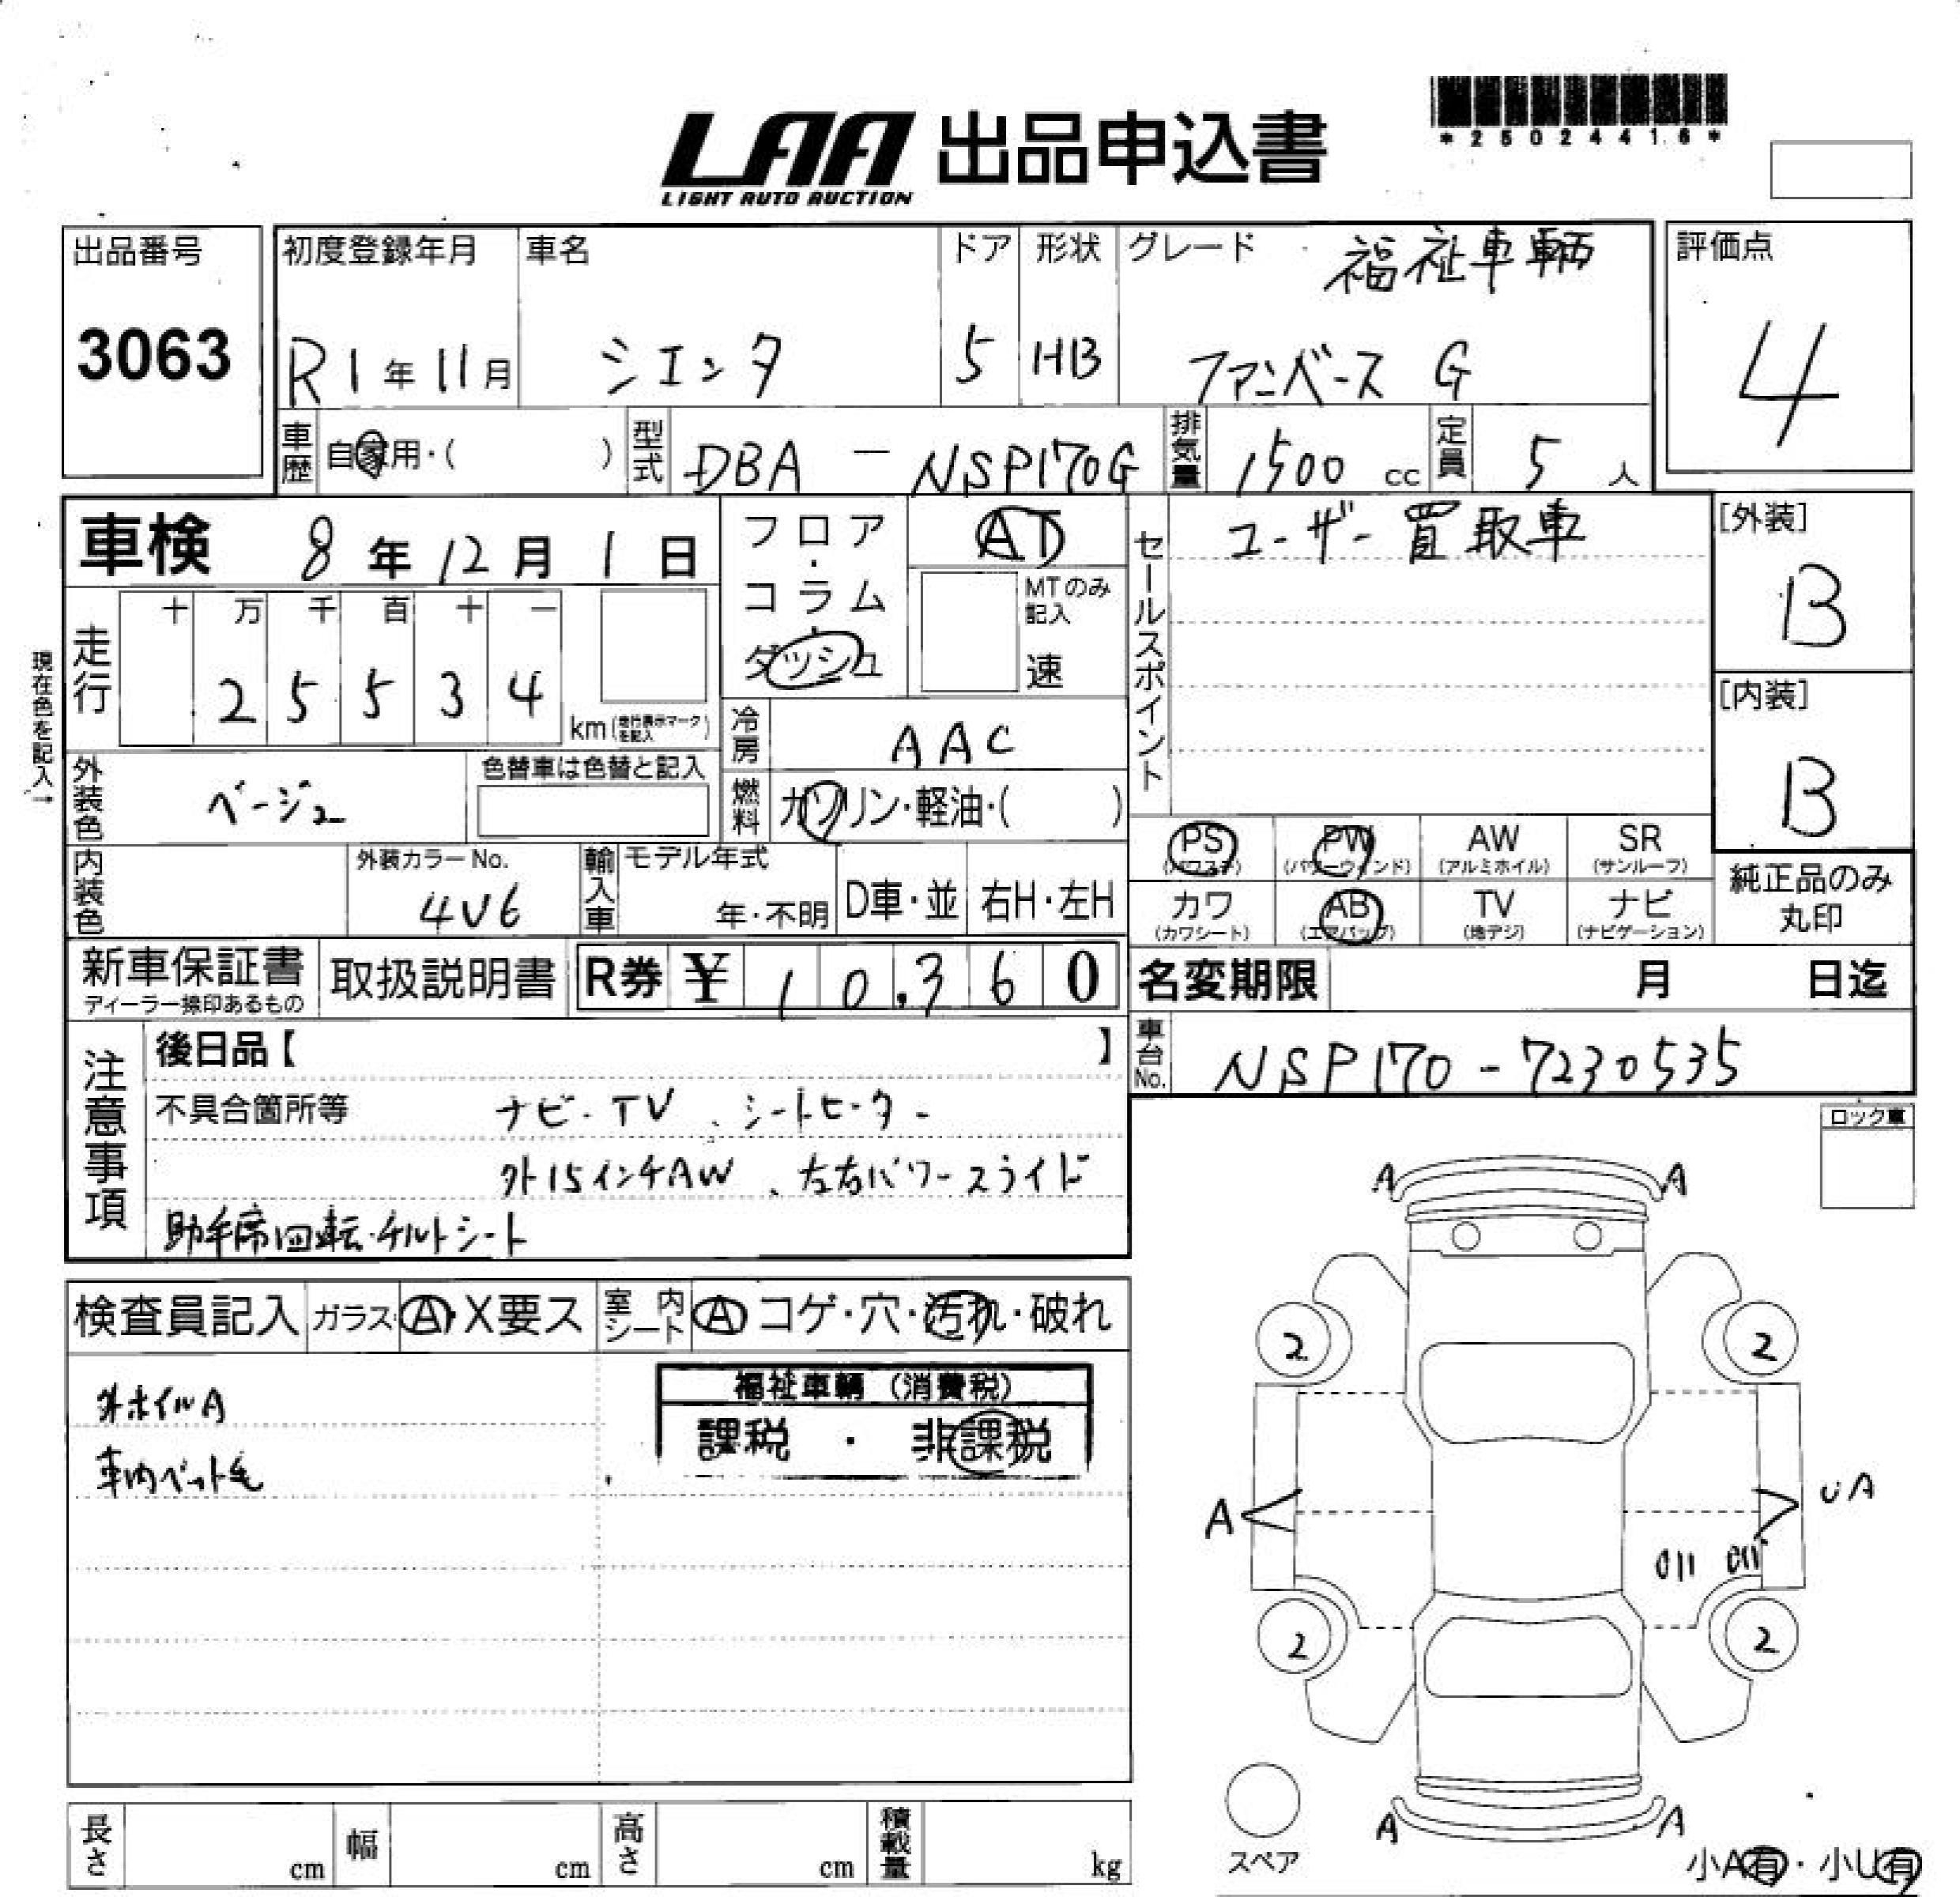 LAA 出品申込書
LIGHT AUTO AUCTION
*25024416*
出品番号
3063
初度登録年月
R1年11月
車名
シエンタ
ドア
5
形状
HB
グレード
福祉車輌
ファンベース G
評価点
4
車歴
自家用・( )
型式
DBA - NSP170G
排気量
1500 cc
定員
5 人
車検 8年12月1日
フロア・コラム・ダッシュ
AT
MTのみ記入
速
セールスポイント
ユーザー買取車
[外装]
B
[内装]
B
現在色を記入→
走行
十 万 千 百 十 一
2 5 5 3 4
km(走行表示マークを記入)
冷房
AAC
燃料
ガソリン・軽油・( )
外装色
ベージュ
色替車は色替と記入
内装色
外装カラーNo.
4V6
輸入車
モデル年式
年・不明
D車・並
右H・左H
PS
(パワステ)
PW
(パワーウィンド)
AW
(アルミホイル)
SR
(サンルーフ)
カワ
(カワシート)
AB
(エアバッグ)
TV
(地デジ)
ナビ
(ナビゲーション)
純正品のみ
丸印
新車保証書
ディーラー捺印あるもの
取扱説明書
R券 ¥ 10,360
名変期限 月 日迄
車台No.
NSP170-7230535
注意事項
後日品【 】
不具合箇所等
ナビ・TV、シートヒーター
外15インチAW、左右パワースライド
助手席回転・チルトシート
ロック車
検査員記入
ガラス A・X要ス
室内シート A コゲ・穴・汚れ・破れ
外ホイルA
車内ペット毛
福祉車輌(消費税)
課税 ・ 非課税
A A
2 2
A
UA
2 2
A A
スペア
小A有・小U有
長さ cm
幅 cm
高さ cm
積載量 kg